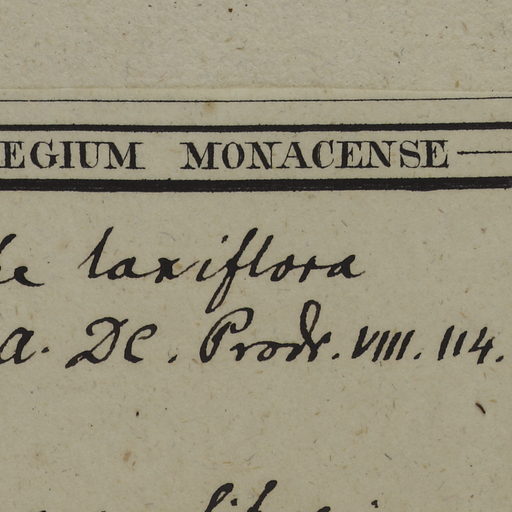 EGIUM MONACENSE
laxiflora
A. DC. Prodr. VIII. 114.